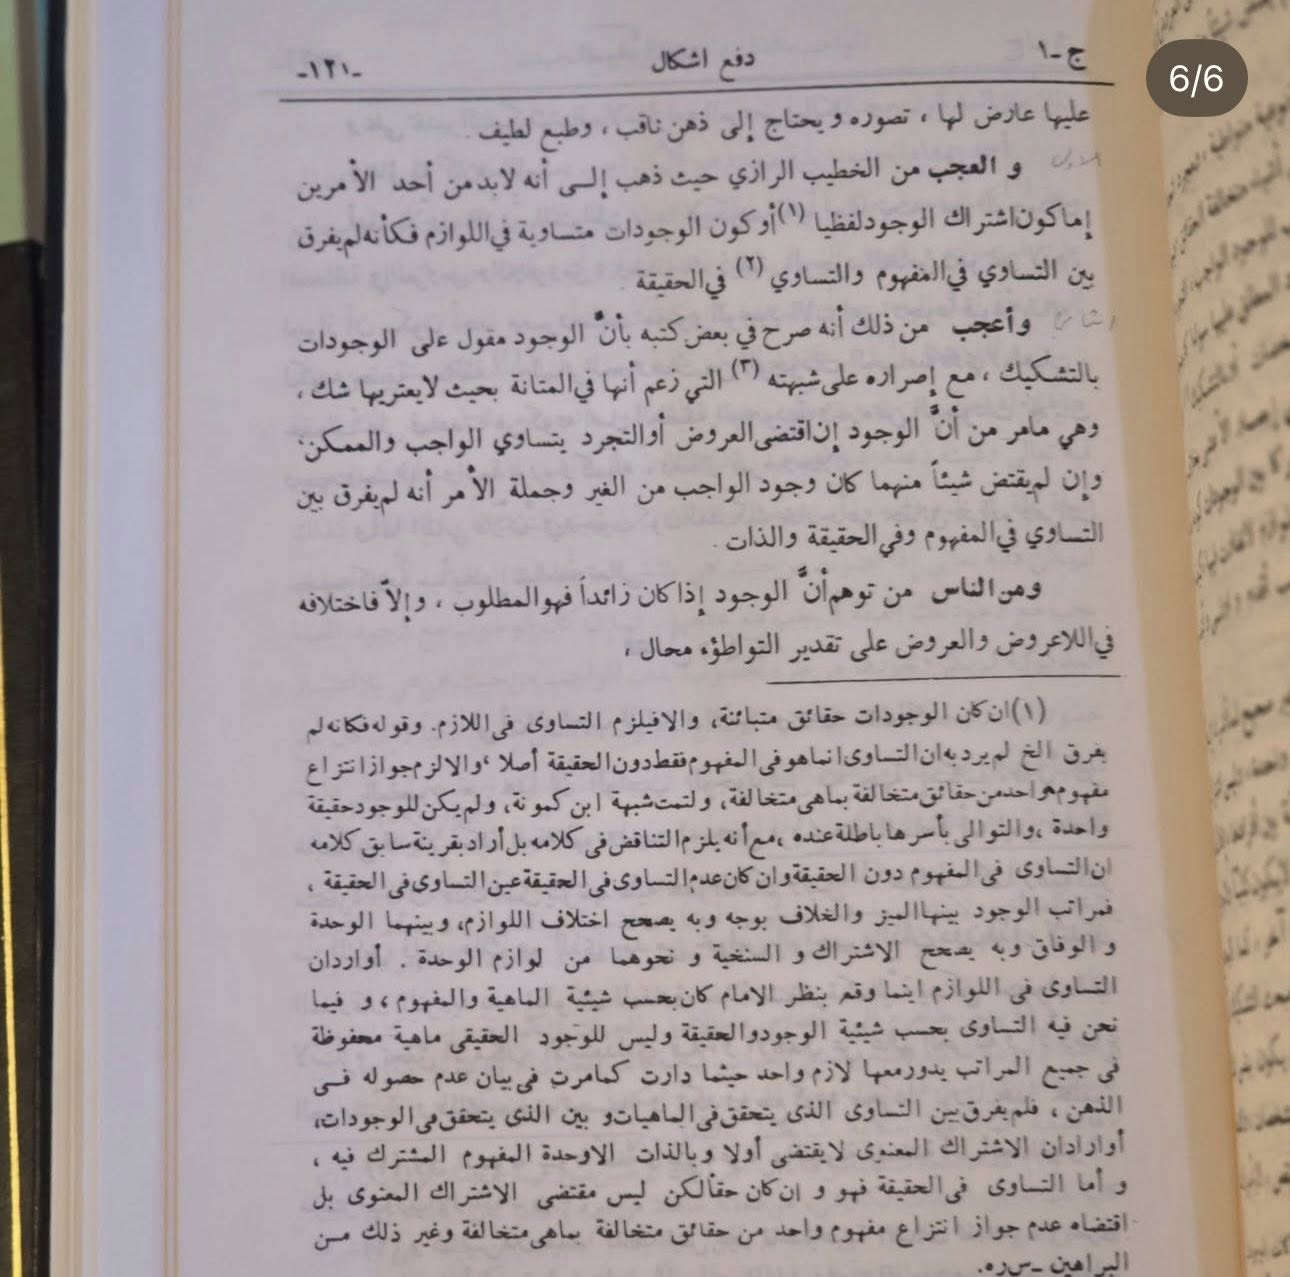 6/6
ج ـ١ دفع اشكال ـ١٢١ـ
عليها عارض لها ، تصوره و يحتاج إلى ذهن ثاقب ، وطبع لطيف .
و العجب من الخطيب الرازي حيث ذهب إلــى أنه لابد من أحد الأمرين
إما كون اشتراك الوجود لفظيا (١) أو كون الوجودات متساوية في اللوازم فكأنه لم يفرق
بين التساوي في المفهوم والتساوي (٢) في الحقيقة .
وأعجب من ذلك أنه صرح في بعض كتبه بأنَّ الوجود مقول على الوجودات
بالتشكيك ، مع إصراره على شبهته (٣) التي زعم أنها في المتانة بحيث لا يعتريها شك ،
وهي مامر من أنَّ الوجود إن اقتضى العروض أو التجرد يتساوي الواجب والممكن،
وإن لم يقتض شيئاً منهما كان وجود الواجب من الغير وجملة الأمر أنه لم يفرق بين
التساوي في المفهوم وفي الحقيقة والذات .
ومن الناس من توهم أنَّ الوجود إذا كان زائداً فهو المطلوب ، وإلاّ فاختلافه
في اللاعروض والعروض على تقدير التواطؤ محال ،
(١) ان كان الوجودات حقائق متبائنة، والا فيلزم التساوى فى اللازم. وقوله فكانه لم
يفرق الخ لم يرد به ان التساوى انما هو فى المفهوم فقط دون الحقيقة أصلا ، والا لزم جواز انتزاع
مفهوم واحد من حقائق متخالفة بماهى متخالفة، ولتمت شبهة ابن كمونة، ولم يكن للوجود حقيقة
واحدة ، والتوالى بأسرها باطلة عنده ، مع أنه يلزم التناقض فى كلامه بل أراد بقرينة سابق كلامه
ان التساوى فى المفهوم دون الحقيقة وان كان عدم التساوى فى الحقيقة عين التساوى فى الحقيقة ،
فمراتب الوجود بينها الميز والخلاف بوجه وبه يصحح اختلاف اللوازم، وبينهما الوحدة
و الوفاق وبه يصحح الاشتراك و السنخية و نحوهما من لوازم الوحدة . أو اراد ان
التساوى فى اللوازم اينما وقع بنظر الامام كان بحسب شيئية الماهية والمفهوم ، و فيما
نحن فيه التساوى بحسب شيئية الوجود والحقيقة وليس للوجود الحقيقى ماهية محفوظة
فى جميع المراتب يدور معها لازم واحد حيثما دارت كمامرت فى بيان عدم حصوله فــى
الذهن ، فلم يفرق بين التساوى الذى يتحقق فى الماهيات و بين الذى يتحقق فى الوجودات،
أو اراد ان الاشتراك المعنوى لا يقتضى أولا وبالذات الا وحدة المفهوم المشترك فيه ،
و أما التساوى فى الحقيقة فهو و إن كان حقاً لكن ليس مقتضى الاشتراك المعنوى بل
اقتضاه عدم جواز انتزاع مفهوم واحد من حقائق متخالفة بماهى متخالفة وغير ذلك مــن
البراهين ـ س ره.